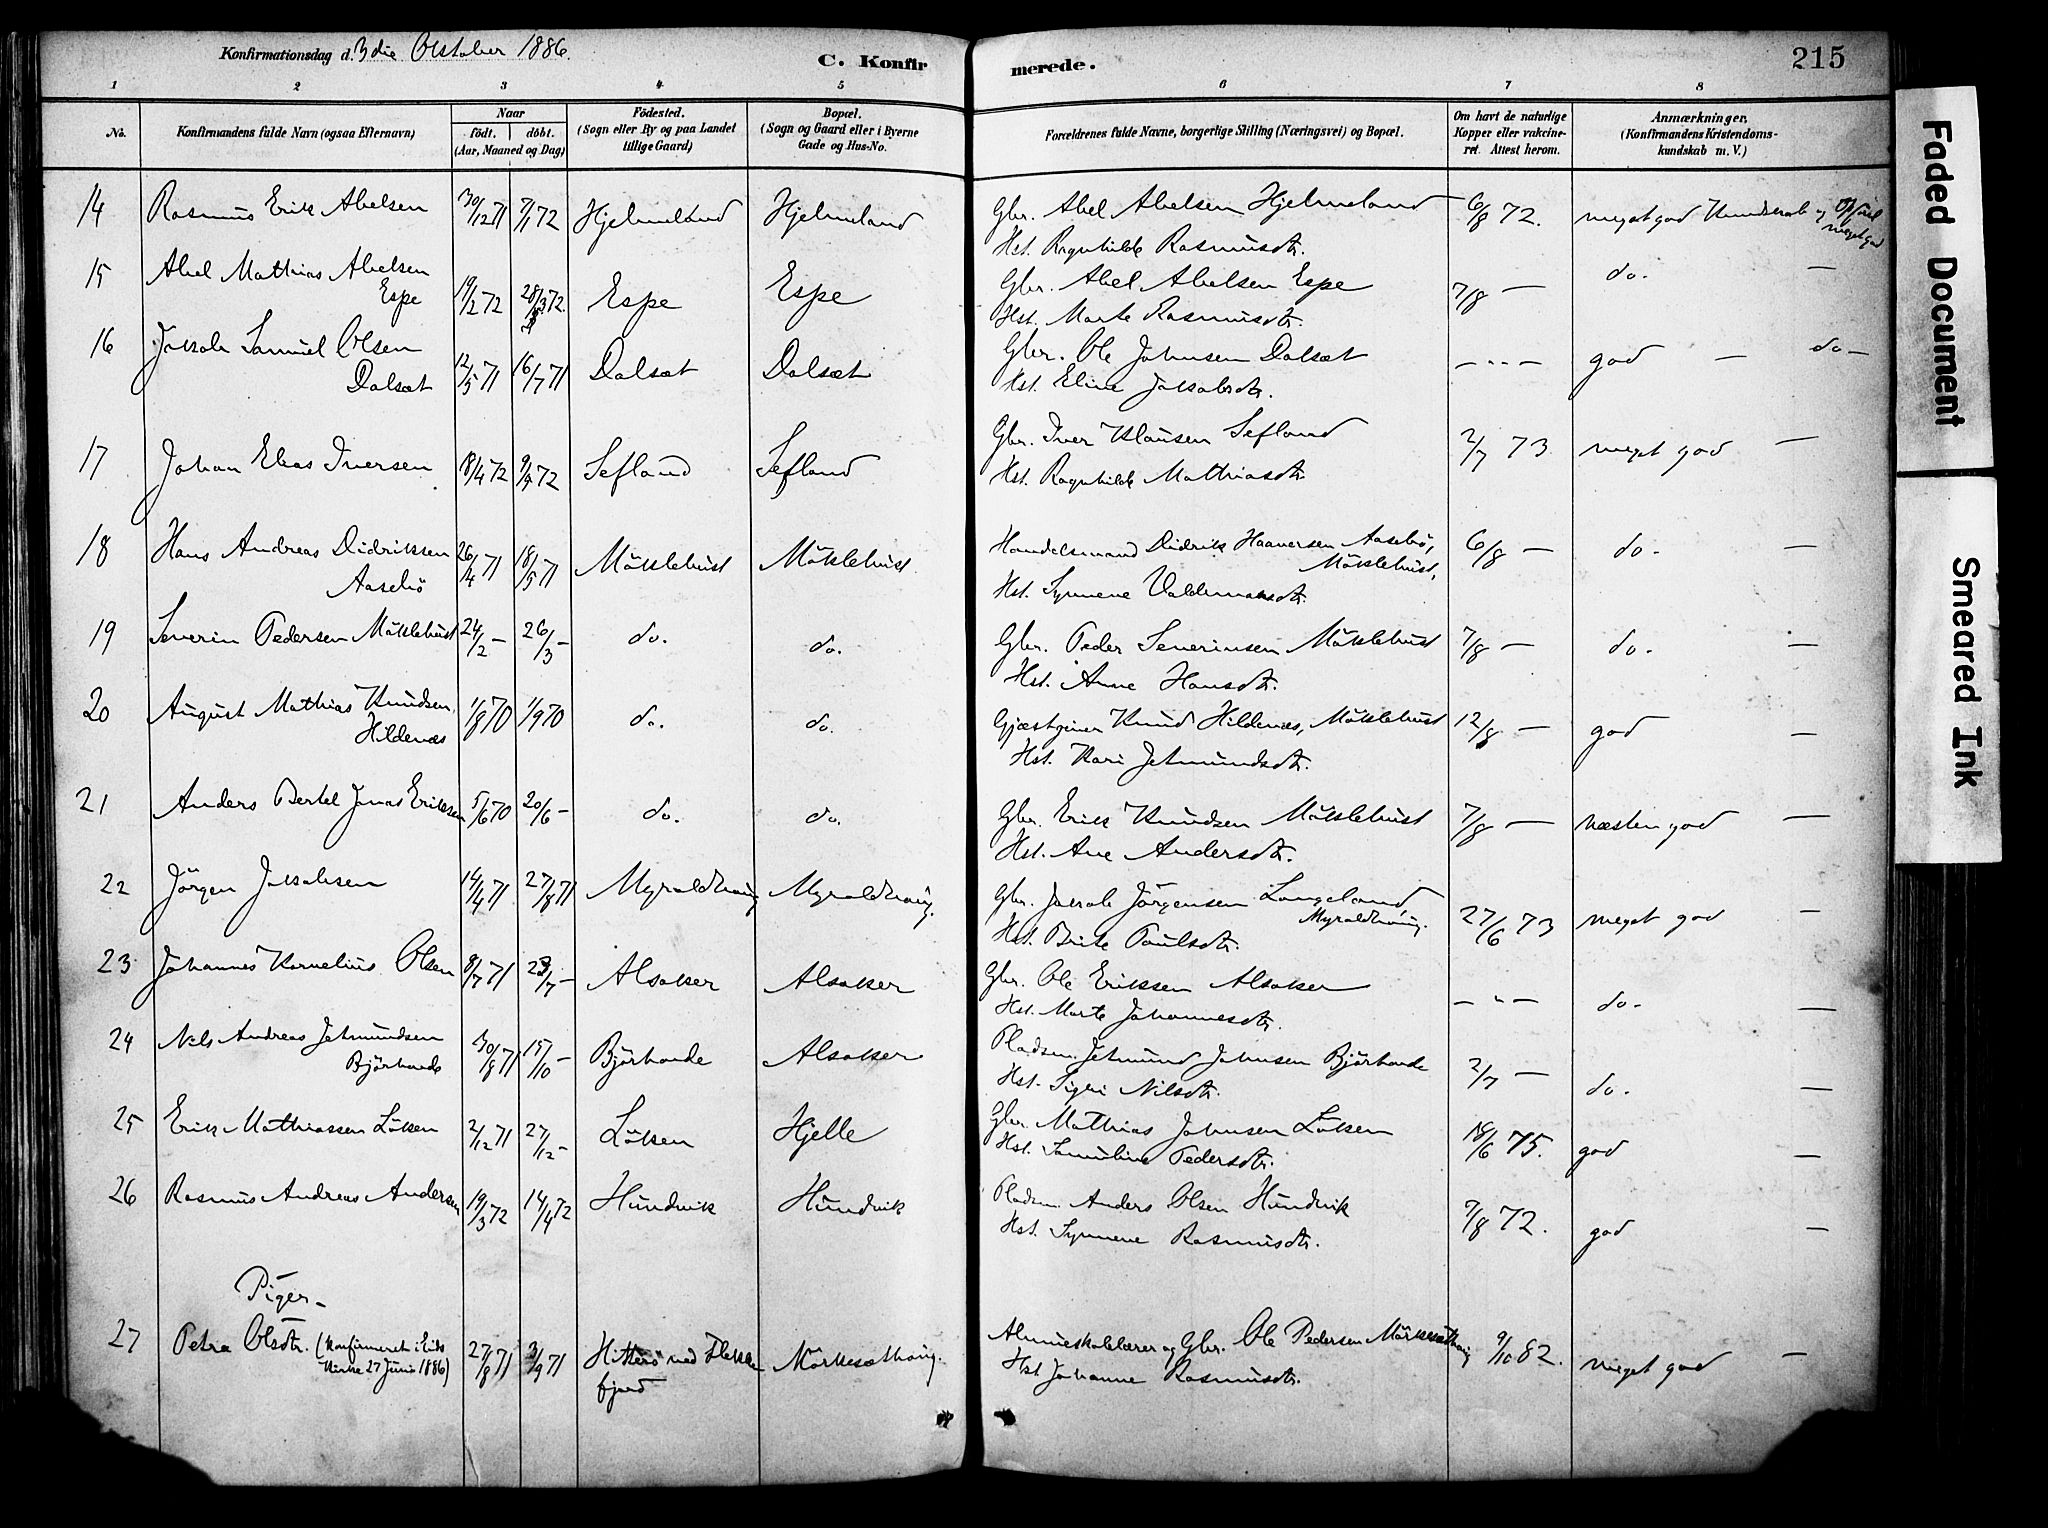 Konfirmationsdag d. 3die October 1886.
C. Konfirmerede.
215
1 2 3 4 5 6 7 8
No.
Konfirmandens fulde Navn (ogsaa Efternavn)
Naar
födt. döbt.
(Aar, Maaned og Dag)
Födested.
(Sogn eller By og paa Landet
tillige Gaard)
Bopæl.
(Sogn og Gaard eller i Byerne
Gade og Hus-No.
Forældrenes fulde Navne, borgerlige Stilling (Næringsvei) og Bopæl.
Om havt de naturlige
Kopper eller vakcine-
ret. Attest herom.
Anmærkninger,
(Konfirmandens Kristendoms-
kundskab m. V.)
14 Rasmus Erik Abelsen 30/12 71 7/1 72 Hjelmeland Hjelmeland Gbr. Abel Abelsen Hjelmeland 6/8 72. meget god Kundskab og Opförsel
meget god
Hst. Ragnhilde Rasmusdtr.
15 Abel Mathias Abelsen
Espe 19/2 72 28/3 72. Espe Espe Gbr. Abel Abelsen Espe 7/8 — do. —
Hst. Marte Rasmusdtr.
16 Jakob Samuel Olsen
Dalsæt 12/5 71 16/7 71 Dalsæt Dalsæt Gbr. Ole Johnsen Dalsæt — " — god — do —
Hst. Eline Jakobsdtr.
17 Johan Elias Iversen 18/4 72 9/7 72 Sefland Sefland Gbr. Iver Klausen Sefland 2/7 73 meget god —
Hst. Ragnhilde Mathiasdtr.
18 Hans Andreas Didriksen
Aasebö 26/4 71 18/5 71 Möklebust Möklebust. Handelsmand Didrik Haaversen Aasebö,
Möklebust, 6/8 — do. —
Hst. Synneve Valdemarsdtr.
19 Severin Pedersen Möklebust 24/2 — 26/3 — do. do. Gbr. Peder Severinsen Möklebust 7/8 — do. —
Hst. Anne Hansdtr.
20 August Mathias Knudsen
Hildenæs 1/8 70 1/9 70 do. do. Gjæstgiver Knud Hildenæs, Möklebust 12/8 — god —
Hst. Kari Jetmundsdtr.
21 Anders Bertel Jonas Eriksen 5/6 70 20/6 — do. do. Gbr. Erik Knudsen Möklebust 7/8 — næsten god —
Hst. Ane Andersdtr.
22 Jörgen Jakobsen 14/4 71 27/8 71 Myroldhaug Myroldhaug. Gbr. Jakob Jörgensen Langeland
Myroldhaug. 27/6 73 meget god —
Hst. Brite Paulsdtr.
23 Johannes Kornelius Olsen 8/7 71 23/7 — Alsaker Alsaker Gbr. Ole Eriksen Alsaker — " — do. —
Hst. Marte Johannesdtr.
24 Nils Andreas Jetmundsen
Björhovde 30/8 71 15/10 — Björhovde Alsaker Pladsm. Jetmund Johnsen Björhovde 2/7 — do. —
Hst. Sigri Nilsdtr.
25 Erik Mathiassen Löken 2/12 71 27/12 — Löken Hjelle Gbr. Mathias Johnsen Löken 18/6 75. god —
Hst. Samuline Pedersdtr.
26 Rasmus Andreas Andersen 19/3 72 14/4 72 Hundvik Hundvik Pladsm. Anders Olsen Hundvik 7/8 72. god —
Hst. Synneve Rasmusdtr.
Piger.
27 Petra Olsdtr. (konfirmeret i Eids
Kirke 27 Juni 1886) 27/8 71 3/9 71 Hitterö ved Flekke
fjord Mörkesæthaug. Almueskolelærer og Gbr. Ole Pedersen Mörkesæthaug 9/10 82. meget god —
Hst. Johanne Rasmusdtr.
Faded Document
Smeared Ink